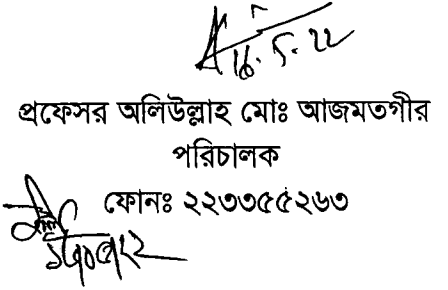 16.5.22
প্রফেসর অলিউল্লাহ মোঃ আজমতগীর
পরিচালক
ফোনঃ ২২৩৩৫৫২৬৩